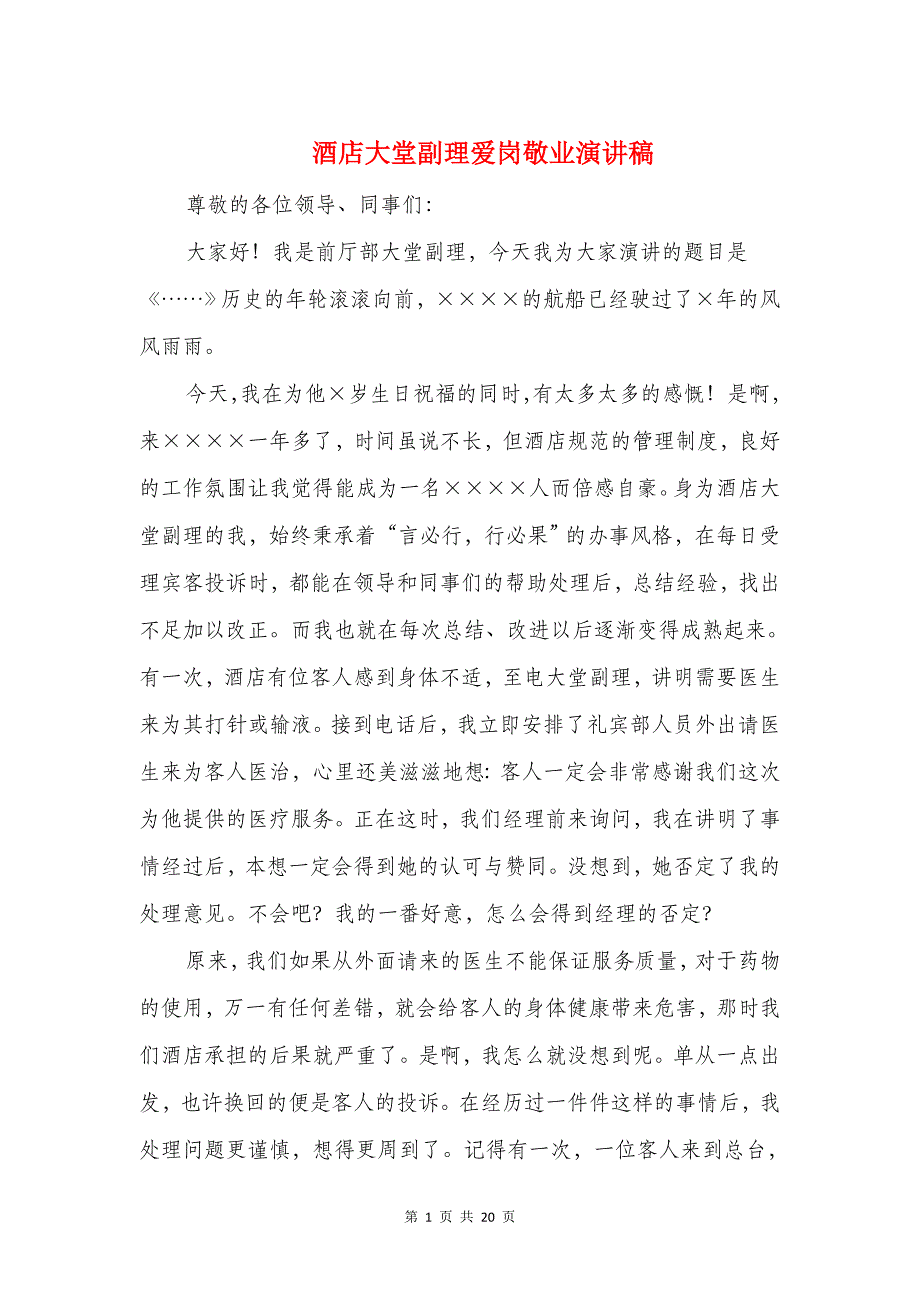 酒店大堂副理爱岗敬业演讲稿
尊敬的各位领导、同事们：
大家好！我是前厅部大堂副理，今天我为大家演讲的题目是
《……》历史的年轮滚滚向前，××××的航船已经驶过了×年的风
风雨雨。
今天，我在为他×岁生日祝福的同时，有太多太多的感慨！是啊，
来××××一年多了，时间虽说不长，但酒店规范的管理制度，良好
的工作氛围让我觉得能成为一名××××人而倍感自豪。身为酒店大
堂副理的我，始终秉承着“言必行，行必果”的办事风格，在每日受
理宾客投诉时，都能在领导和同事们的帮助处理后，总结经验，找出
不足加以改正。而我也就在每次总结、改进以后逐渐变得成熟起来。
有一次，酒店有位客人感到身体不适，至电大堂副理，讲明需要医生
来为其打针或输液。接到电话后，我立即安排了礼宾部人员外出请医
生来为客人医治，心里还美滋滋地想：客人一定会非常感谢我们这次
为他提供的医疗服务。正在这时，我们经理前来询问，我在讲明了事
情经过后，本想一定会得到她的认可与赞同。没想到，她否定了我的
处理意见。不会吧？我的一番好意，怎么会得到经理的否定？
原来，我们如果从外面请来的医生不能保证服务质量，对于药物
的使用，万一有任何差错，就会给客人的身体健康带来危害，那时我
们酒店承担的后果就严重了。是啊，我怎么就没想到呢。单从一点出
发，也许换回的便是客人的投诉。在经历过一件件这样的事情后，我
处理问题更谨慎，想得更周到了。记得有一次，一位客人来到总台，
第 1 页 共 20 页